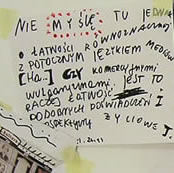 NIE MYŚLĘ TU JEDNAK
O ŁATWOŚCI RÓWNOZNACZNEJ
Z POTOCZNYM JĘZYKIEM MEDIÓW
[Ha..] CZY KOMERCYJNYMI
WULGARYZMAMI. JEST TO
RACZEJ ŁATWOŚĆ
PODOBNYCH DOŚWIADCZEŃ I
PERSPEKTYWY ŻYCIOWEJ.